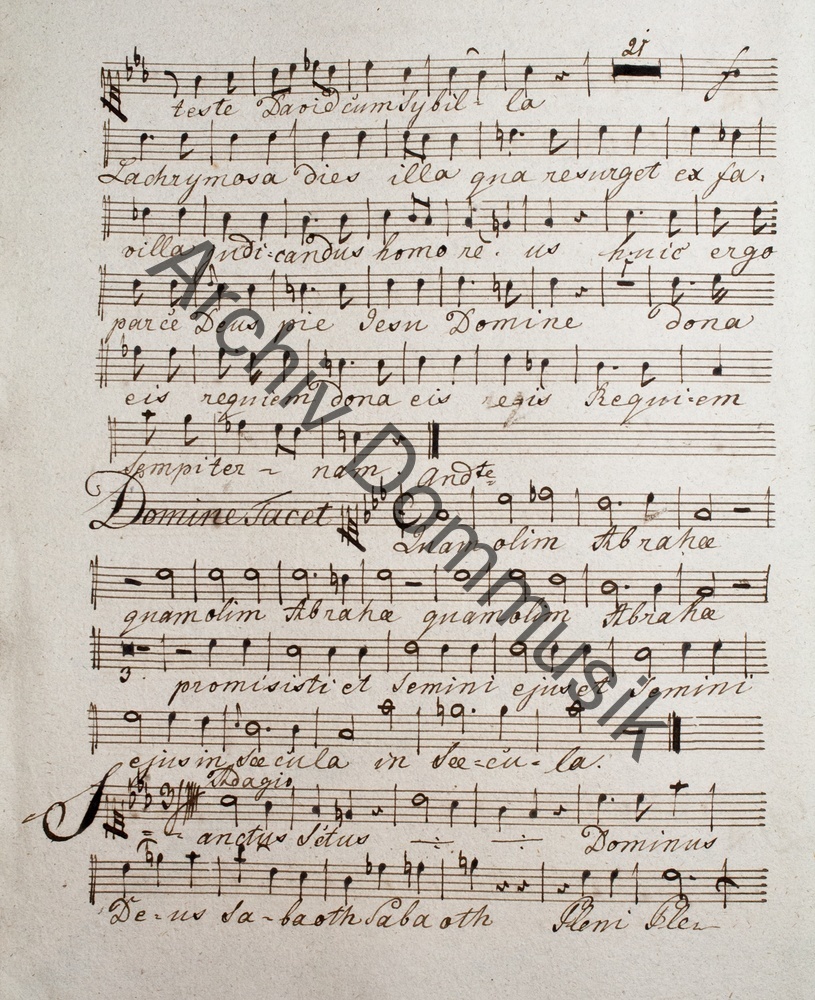 21
teste David cum Sybil- la
Lachrymosa dies illa qua resurget ex fa.
villa judi-candus homo re. us huic ergo
parce Deus pie Jesu Domine dona
eis requiem dona eis regis Requi-em
sempiter - nam. Andte
Domine Tacet
Quam olim Abrahæ
quam olim Abrahæ quam olim Abrahæ
3.
promisisti et Semini ejus et Semini
ejus in sæcula in Sæ-cu-la.
Adagio
Sanctus Sctus Dominus
De-us Sa-baoth Sabaoth Pleni Ple-
Archiv Dommusik